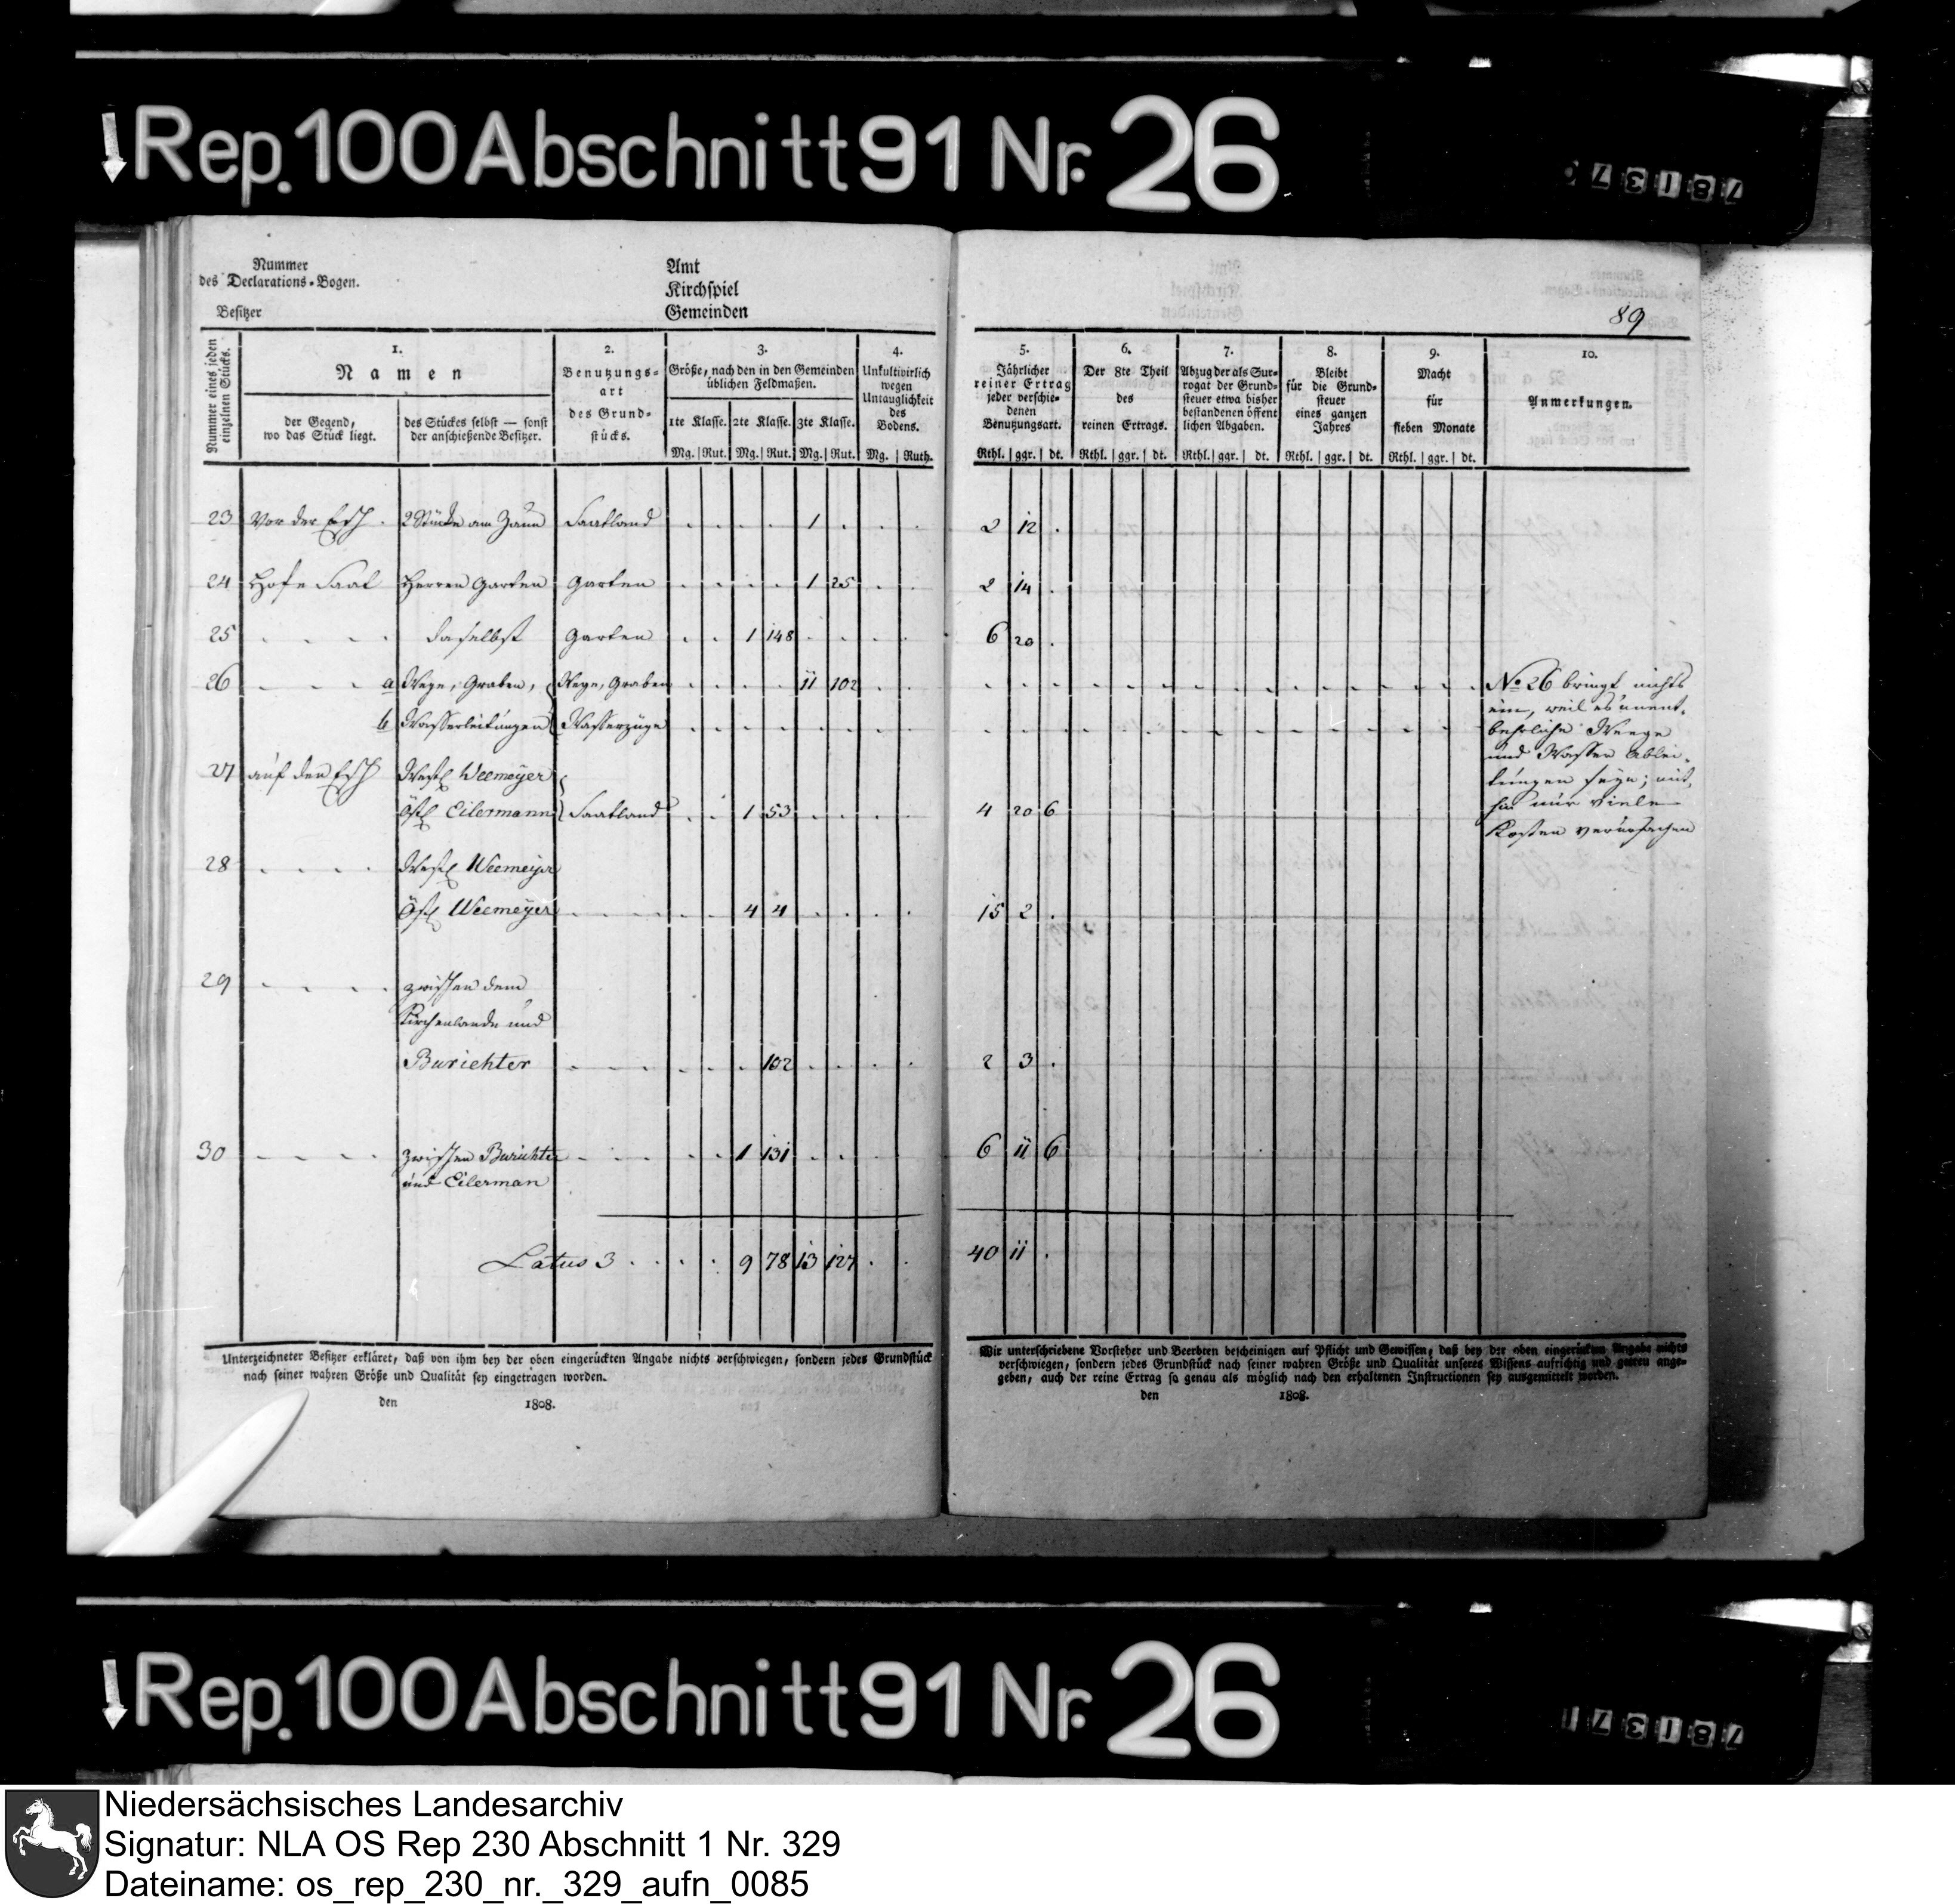 Rep. 100 Abschnitt 91 Nr. 26
78137
Nummer
des Declarations-Bogen.
Besitzer
Amt
Kirchspiel
Gemeinden
89
Nummer eines jeden einzelnen Stücks.
1.
Namen
der Gegend,
wo das Stück liegt.
des Stückes selbst — sonst
der anschießende Besitzer.
2.
Benutzungs-
art
des Grund-
stücks.
3.
Größe, nach den in den Gemeinden
üblichen Feldmaßen.
1te Klasse. 2te Klasse. 3te Klasse.
Mg. Rut. Mg. Rut. Mg. Rut.
4.
Unkultivirlich
wegen
Untauglichkeit
des
Bodens.
Mg. Ruth.
5.
Jährlicher
reiner Ertrag
jeder verschie-
denen
Benutzungsart.
Rthl. ggr. dt.
6.
Der 8te Theil
des
reinen Ertrags.
Rthl. ggr. dt.
7.
Abzug der als Sur-
rogat der Grund-
steuer etwa bisher
bestandenen öffent
lichen Abgaben.
Rthl. ggr. dt.
8.
Bleibt
für die Grund-
steuer
eines ganzen
Jahres
Rthl. ggr. dt.
9.
Macht
für
sieben Monate
Rthl. ggr. dt.
10.
Anmerkungen.
23 Vor der Esch 2 Stücke am Zaun Saatland 1 2 12
24 Hofe Saal Herren Garten Garten 1 25 2 14
25 daselbst Garten 1 148 6 20
26 a Wege, Graben, Wege, Graben 11 102
b Wasserleitungen Wasserzüge
No 26 bringt nichts
ein, weil es unent-
behrliche Weege
und Wasser Ablei-
tungen seyn; mit
hin nur viele
Kosten verursachen
27 auf den Esch Westl Weemeyer
Östl Eilermann Saatland 1 53 4 20 6
28 Westl Weemeyer
Östl Weemeyer 4 4 15 2
29 zwischen dem
Kirchenlande und
Burichter 102 2 3
30 zwischen Burichter 1 131 6 11 6
und Eilerman
Latus 3 9 78 13 127 40 11
Unterzeichneter Besitzer erkläret, daß von ihm bey der oben eingerückten Angabe nichts verschwiegen, sondern jedes Grundstück
nach seiner wahren Größe und Qualität sey eingetragen worden.
den 1808.
Wir unterschriebene Vorsteher und Beerbten bescheinigen auf Pflicht und Gewissen, daß bey der oben eingerückten Angabe nichts
verschwiegen, sondern jedes Grundstück nach seiner wahren Größe und Qualität unseres Wissens aufrichtig und getreu ange-
geben, auch der reine Ertrag so genau als möglich nach den erhaltenen Instructionen sey ausgemittelt worden.
den 1808.
Rep. 100 Abschnitt 91 Nr. 26
781371
Niedersächsisches Landesarchiv
Signatur: NLA OS Rep 230 Abschnitt 1 Nr. 329
Dateiname: os_rep_230_nr._329_aufn_0085